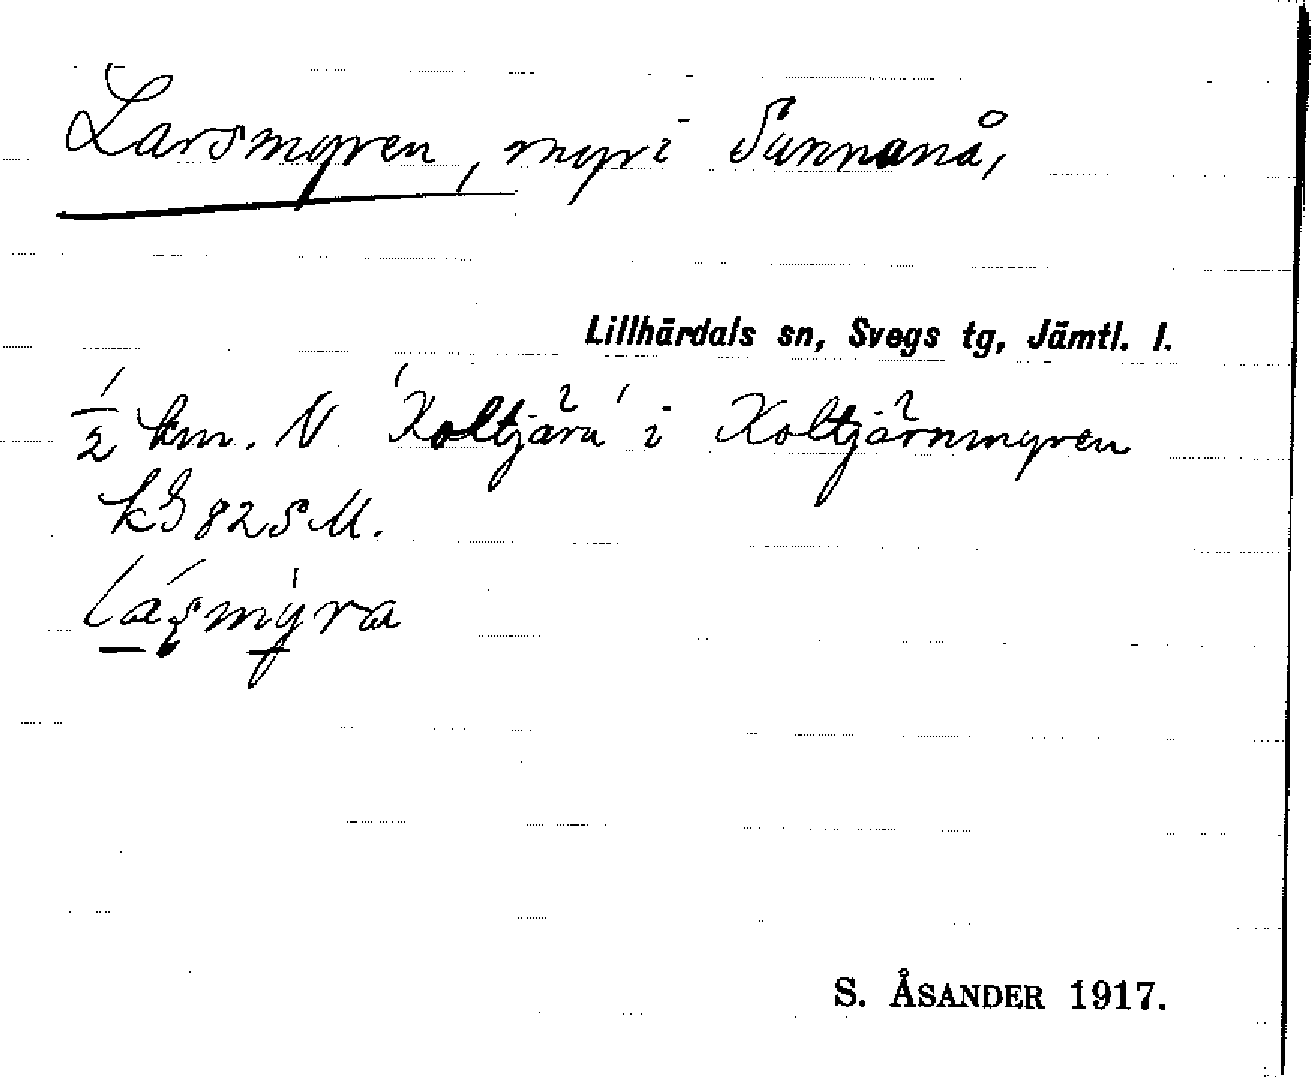 Larsmyren, myr i Sunnanå,
Lillhärdals sn, Svegs tg, Jämtl. l.
1/2 km. N 'Koltjärn' i Koltjärnmyren
825 M.
lásmýra
S. ÅSANDER 1917.